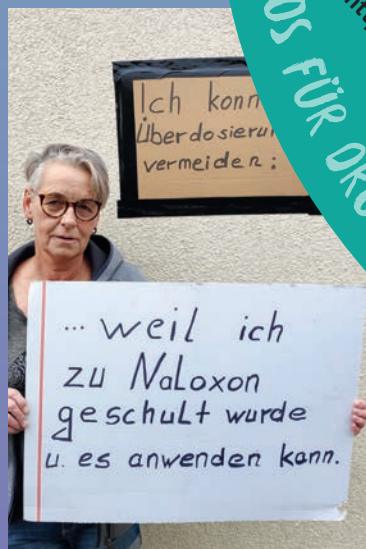 Ich
Überdosierun
vermeiden:
OS FÜR
... weil ich
zu Naloxon
geschult wurde
u. es anwenden kann.